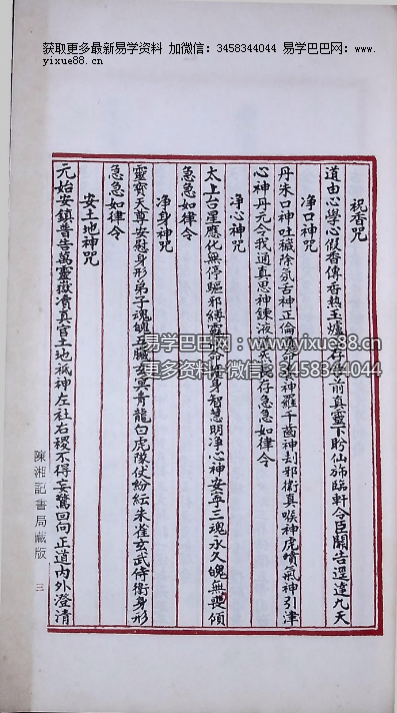 获取更多最新易学资料 加微信：3458344044 易学巴巴网：www.
yixue88.cn
祝香咒
道由心學心假香傳香熱玉爐心存帝前真靈下盼仙斾臨軒令臣關告逕達九天
净口神咒
丹朱口神吐穢除氛舌神正倫通命養神羅千齒神却邪衛真喉神虎賁氣神引津
心神丹元令我通真思神鍊液道炁長存急急如律令
净心神咒
太上台星應化無停驅邪縛魅保命護身智慧明净心神安寧三魂永久魄無喪傾
急急如律令
净身神咒
靈寳天尊安慰身形弟子魂魄五臟玄冥青龍白虎隊伏紛紜朱雀玄武侍衛身形
急急如律令
安土地神咒
元始安鎮普告萬靈嶽瀆真官土地祇神左社右稷不得妄驚回向正道内外澄清
陳湘記書局藏版
三
易学巴巴网：www.yixue88.cn
更多资料+微信：3458344044